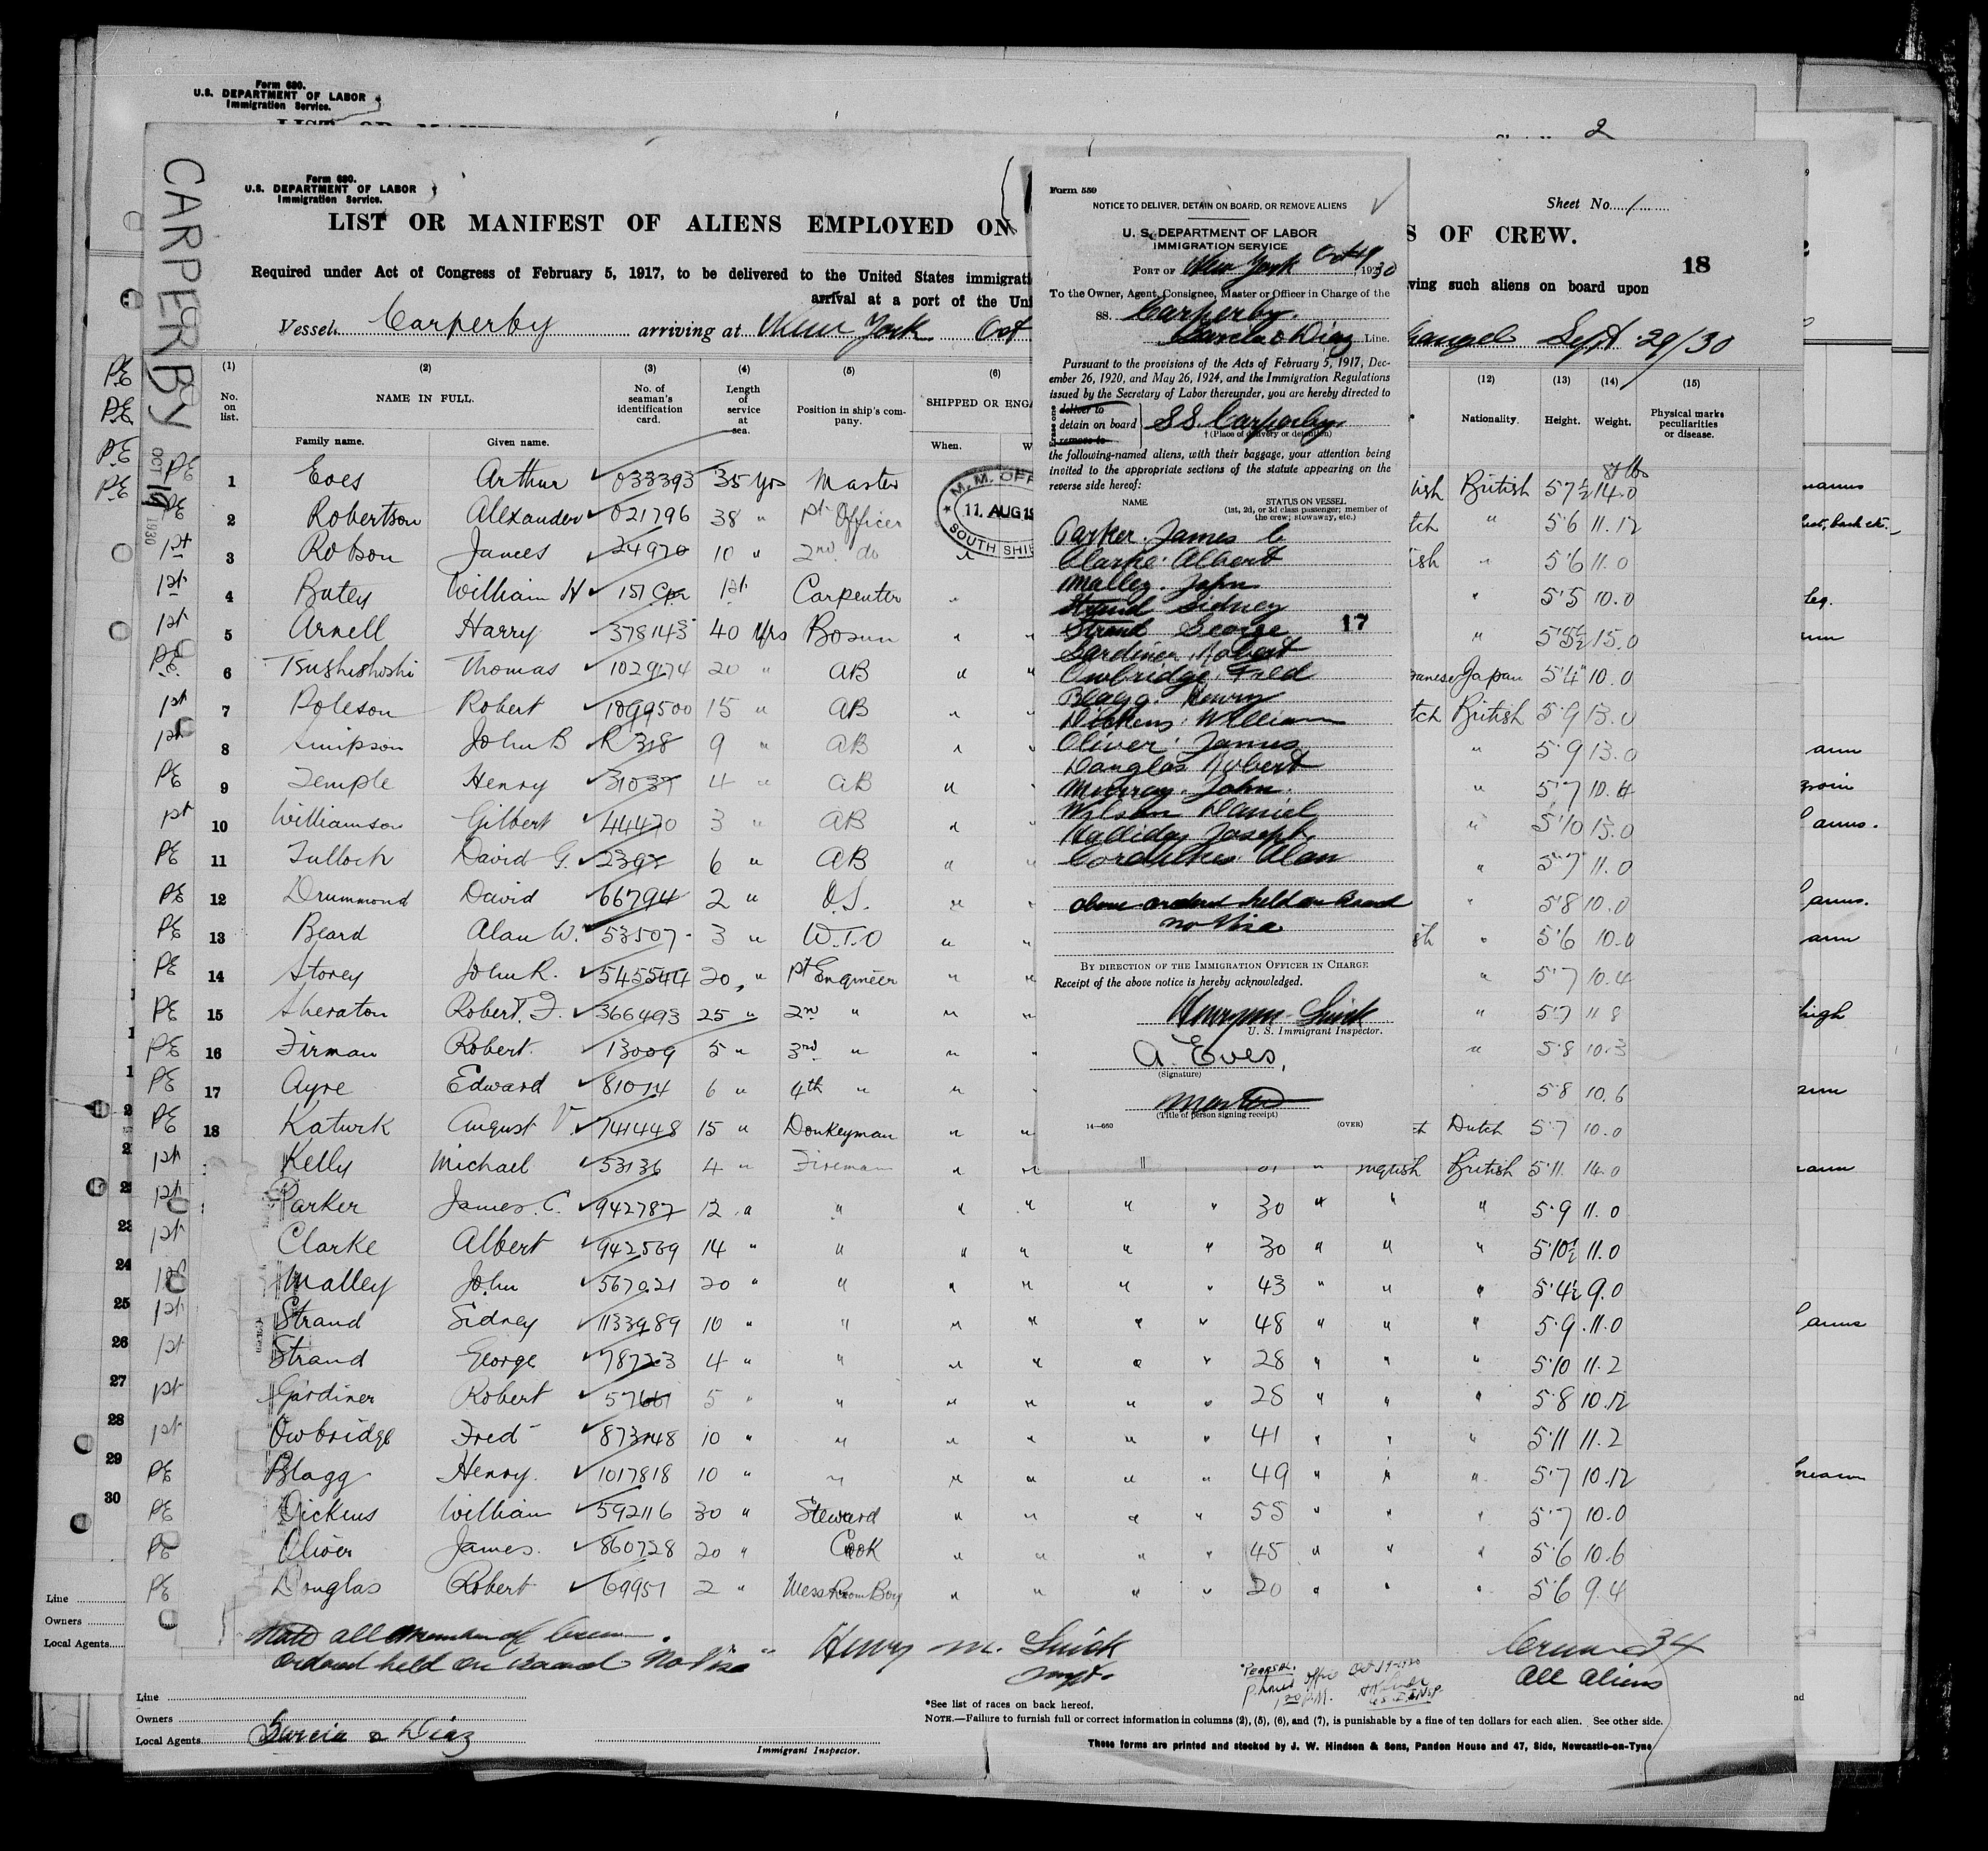 Form 680.
U.S. DEPARTMENT OF LABOR
Immigration Service.
2
CARPERBY OCT 19 1930
Form 680.
U.S. DEPARTMENT OF LABOR
Immigration Service.
Sheet No. 1
LIST OR MANIFEST OF ALIENS EMPLOYED ON
S OF CREW.
18
Required under Act of Congress of February 5, 1917, to be delivered to the United States immigrati
ving such aliens on board upon
arrival at a port of the Uni
Vessel Carperby arriving at New York Oct
hangel Sept 29/30
(1) (2) (3) (4) (5) (6) (12) (13) (14) (15)
No. on list. NAME IN FULL. No. of seaman's identification card. Length of service at sea. Position in ship's company. SHIPPED OR ENGA Nationality. Height. Weight. Physical marks peculiarities or disease.
Family name. Given name. When. W
PE 1 Eves Arthur 033393 35 yrs Master ish British 5 7½ 14.0
PE 2 Robertson Alexander 021796 38 " 1st Officer tch " 5'6 11.12
1st 3 Robson James 24970 10 " 2nd do " ish " 5'6 11.0
1st 4 Batey William H 151 1st Carpenter " " 5'5 10.0
1st 5 Arnell Harry 378143 40 yrs Bosun " " " 5'5½ 15.0
PE. 6 Tsushishoshi Thomas 1029174 20 " AB " " panese Japan 5'4 10.0
1st 7 Poleson Robert 1099500 15 " AB " " tch British 5'9 13.0
1st 8 Simpson John B R 318 9 " AB " " " 5'9 13.0
PE 9 Temple Henry 31037 4 " AB " " " 5'7 10.4
1st 10 Williamson Gilbert 44470 3 " AB " " " 5'10 13.0
PE 11 Tulloch David G. 2392 6 " AB " " " 5'7 11.0
PE 12 Drummond David 66794 2 " O.S. " " " 5'8 10.0
PE 13 Beard Alan W. 53507 3 " W.T.O " " sh " 5'6 10.0
PE 14 Storey John R. 545544 20 " 1st Engineer " " " 5'7 10.4
PE 15 Sheraton Robert. F. 366493 25 " 2nd " " " " 5'7 11 8
PE 16 Firman Robert. 13009 5 " 3rd " " " " 5'8 10.3
PE 17 Ayre Edward 81074 6 " 4th " " " 5'8 10.6
PE 18 Katurk August V. 741448 15 " Donkeyman " " ch Dutch 5'7 10.0
1st Kelly Michael 53136 4 " Fireman " " 31 " nglish British 5'11. 14.0
1st Parker James. C. 942787 12 " " " " " " 30 " " " 5'9 11.0
1st Clarke Albert 942569 14 " " " " " " 30 " " " 5'10½ 11.0
1st Malley John 567021 20 " " " " " " 43 " " " 5'4½ 9.0
1st Strand Sidney 1133989 10 " " " " " " 48 " " " 5'9 11.0
1st Strand George 78723 4 " " " " " " 28 " " " 5'10 11.2
1st Gardiner Robert 57661 5 " " " " " " 28 " " " 5'8 10.12
1st Owbridge Fred 873148 10 " " " " " " 41 " " " 5'11 11.2
PE Blagg Henry. 1017818 10 " " " " " " 49 " " " 5'7 10.12
PE Dickens William 592116 30 " Steward " " " " 55 " " " 5'7 10.0
PE Oliver James. 860728 20 " Cook " " " " 45 " " " 5'6 10.6
PE Douglas Robert 69951 2 " Mess Room Boy " " " " 20 " " " 5'6 9.4
M.M. OFF
11. AUG 19
SOUTH SHI
Form 559
NOTICE TO DELIVER, DETAIN ON BOARD, OR REMOVE ALIENS
U. S. DEPARTMENT OF LABOR
IMMIGRATION SERVICE
PORT OF New York Oct 19, 1930
To the Owner, Agent, Consignee, Master or Officer in Charge of the
SS. Carperby.
Garcia & Diaz Line.
Pursuant to the provisions of the Acts of February 5, 1917, Dec-
ember 26, 1920, and May 26, 1924, and the Immigration Regulations
issued by the Secretary of Labor thereunder, you are hereby directed to
Erase one
deliver to
detain on board
remove to
SS. Carperby
† (Place of delivery or detention)
the following-named aliens, with their baggage, your attention being
invited to the appropriate sections of the statute appearing on the
reverse side hereof:
NAME STATUS ON VESSEL
(1st, 2d, or 3d class passenger; member of the crew; stowaway, etc.)
Parker. James C
Clarke. Albert
Malley. John
Strand Sidney
Strand George 17
Gardiner, Robert
Owbridge, Fred
Blagg. Henry
Dickens. William
Oliver. James
Douglas Robert
Murray. John.
Wilson Daniel
Halliday Joseph
Alan
above ordered held on board
no visa
BY DIRECTION OF THE IMMIGRATION OFFICER IN CHARGE
Receipt of the above notice is hereby acknowledged.
U. S. Immigrant Inspector.
A. Eves,
(Signature)
Master
(Title of person signing receipt)
14—660 (OVER)
Note all member of Crew
Ordered held on board "No Visa"
Henry M.
Insp.
Crew 34
All aliens
Line
Owners
Local Agents Garcia & Diaz
Immigrant Inspector.
*See list of races on back hereof.
NOTE.—Failure to furnish full or correct information in columns (2), (5), (6), and (7), is punishable by a fine of ten dollars for each alien. See other side.
These forms are printed and stocked by J. W. Hindson & Sons, Pandon House and 47, Side, Newcastle-on-Tyne
Line
Owners
Local Agents